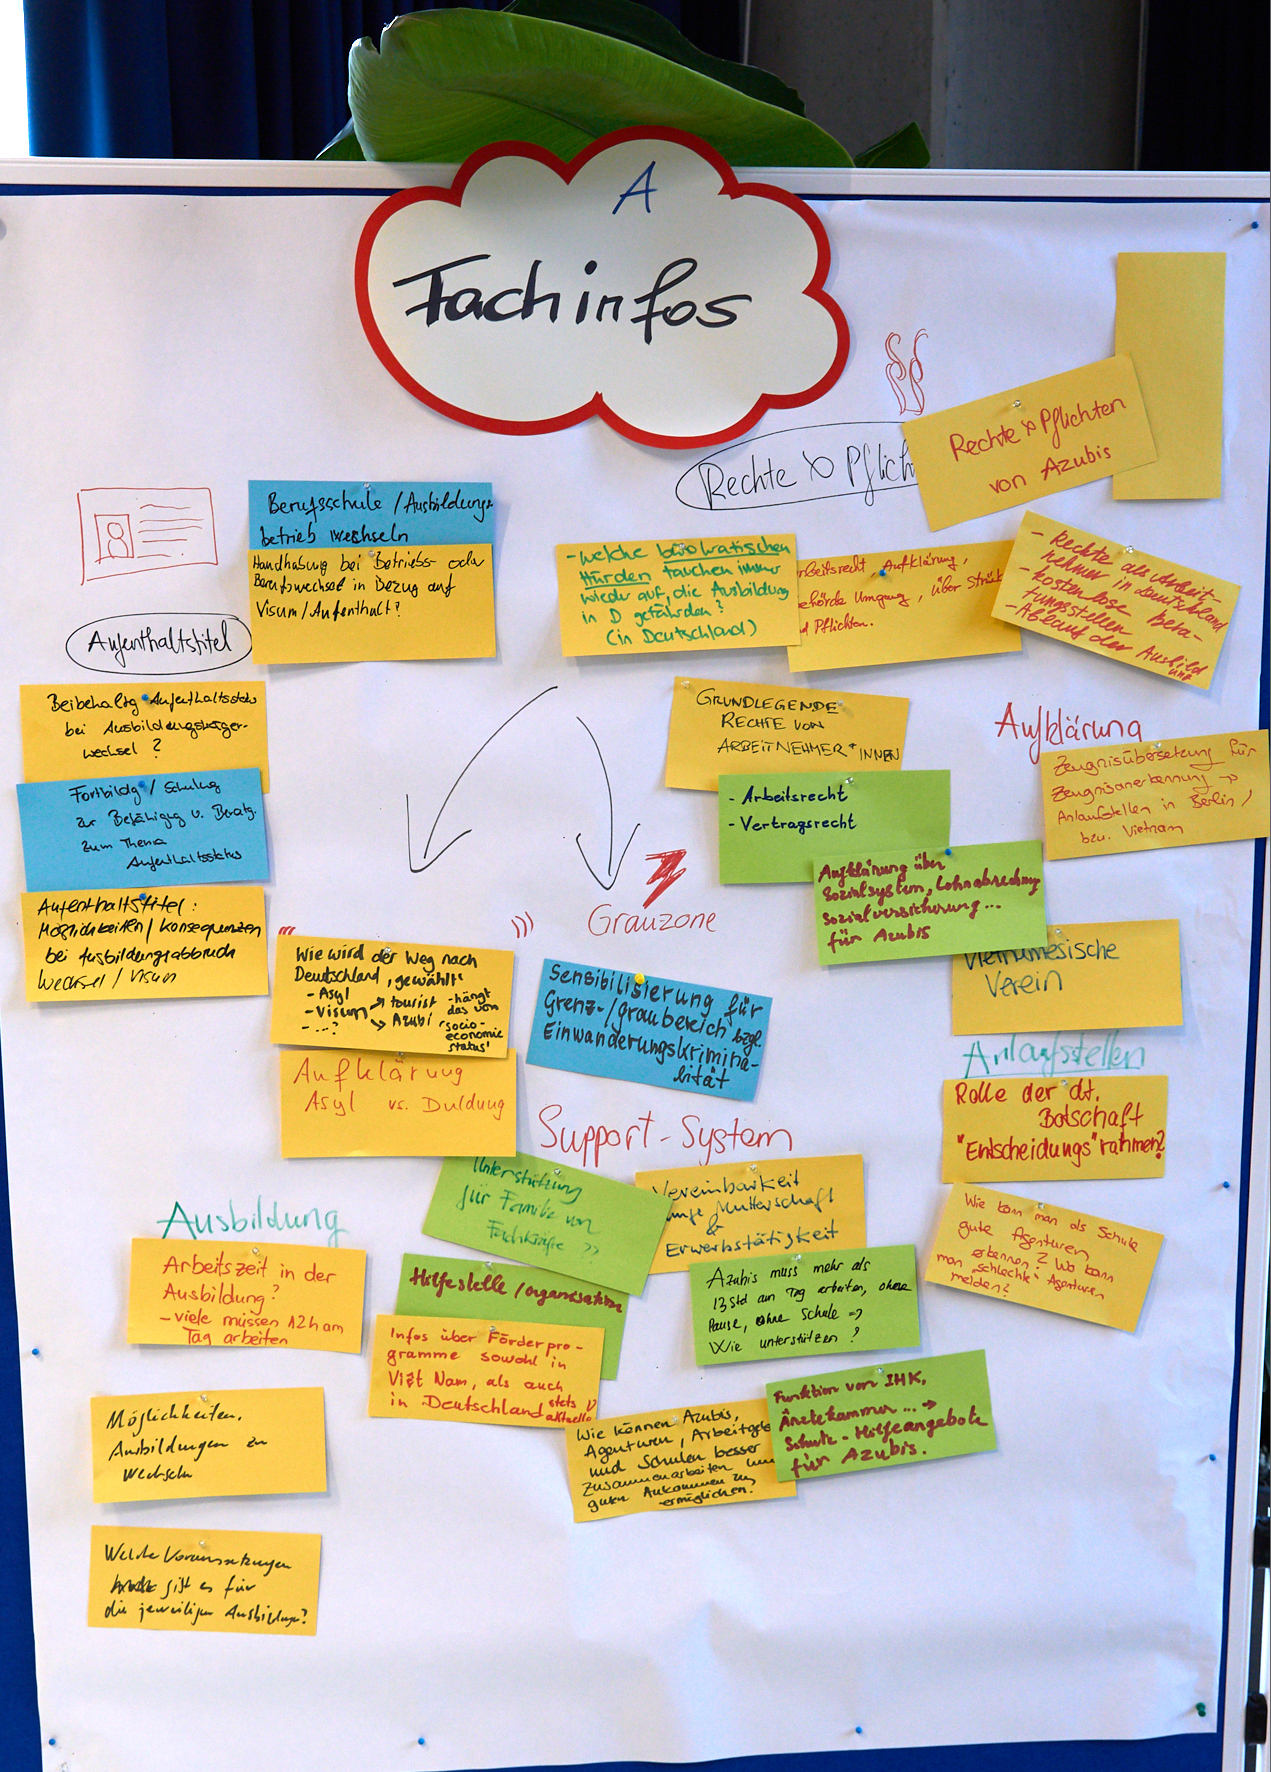 A
Fachinfos
§§
Rechte & Pflich
Rechte & Pflichten
von Azubis
Berufsschule / Ausbildungs-
betrieb wechseln
Handhabung bei Betriebs- oder
Berufswechsel in Bezug auf
Visum / Aufenthalt?
Aufenthaltstitel
Beibehaltg Aufenthaltsstatus
bei Ausbildungsträger-
wechsel ?
Fortbildg / Schulung
zur Befähigg u. Beratg.
zum Thema
Aufenthaltsstatus
Aufenthaltstitel:
Möglichkeiten / Konsequenzen
bei Ausbildungsabbruch
Wechsel / Visum
- welche bürokratischen
Hürden tauchen immer
wieder auf, die Ausbildung
in D gefährden?
(in Deutschland)
rbeitsrecht, Aufklärung,
ehörde Umgang, über
d Pflichten.
- Rechte als Arbeit-
nehmer in Deutschland
- kostenlose Bera-
tungsstellen
- Ablauf der Ausbild
ung
GRUNDLEGENDE
RECHTE VON
ARBEITNEHMER*INNEN
- Arbeitsrecht
- Vertragsrecht
Aufklärung über
Sozialsystem, Lohnabrechnung
Sozialversicherung...
für Azubis
Aufklärung
Zeugnisübersetzung für
Zeugnisanerkennung →
Anlaufstellen in Berlin /
bzw. Vietnam
Vietnamesische
Verein
Anlaufstellen
Rolle der dt.
Botschaft
"Entscheidungs"rahmen?
Wie kann man als Schule
gute Agenturen
erkennen? Wo kann
man „schlechte" Agenturen
melden?
Grauzone
Wie wird der Weg nach
Deutschland „gewählt"
- Asyl
- Visum → tourist
↘ Azubi
- ...?
- hängt
das vom
'socio-
economic
status'
Aufklärung
Asyl vs. Duldung
Sensibilisierung für
Grenz-/graubereich bzgl.
Einwanderungskrimina-
lität
Support-System
Unterstützung
für Familie von
Fachkräfte
Vereinbarkeit
junge Mutterschaft
&
Erwerbstätigkeit
Hilfestelle / organisation
Azubis muss mehr als
13 Std am Tag arbeiten, ohne
Pause, ohne Schule =>
Wie unterstützen ?
Infos über Förderpro-
gramme sowohl in
Việt Nam, als auch
in Deutschland stets
aktuelle
Wie können Azubis,
Agenturen, Arbeitgeb
und Schulen besser
zusammenarbeiten um
gutes Ankommen zu
ermöglichen.
Funktion von IHK,
Ärztekammer ... →
Schutz- Hilfeangebote
für Azubis.
Ausbildung
Arbeitszeit in der
Ausbildung?
- viele müssen 12h am
Tag arbeiten
Möglichkeiten,
Ausbildungen zu
wechseln
Welche Voraussetzungen
gibt es für
die jeweiligen Ausbildungen?